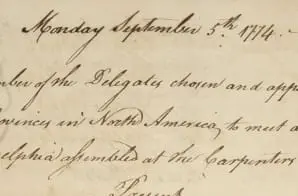 Monday September 5th. 1774. -
mber of the Delegates chosen and app
ovinces in North America, to meet a
delphia assembled at the Carpenters
Present